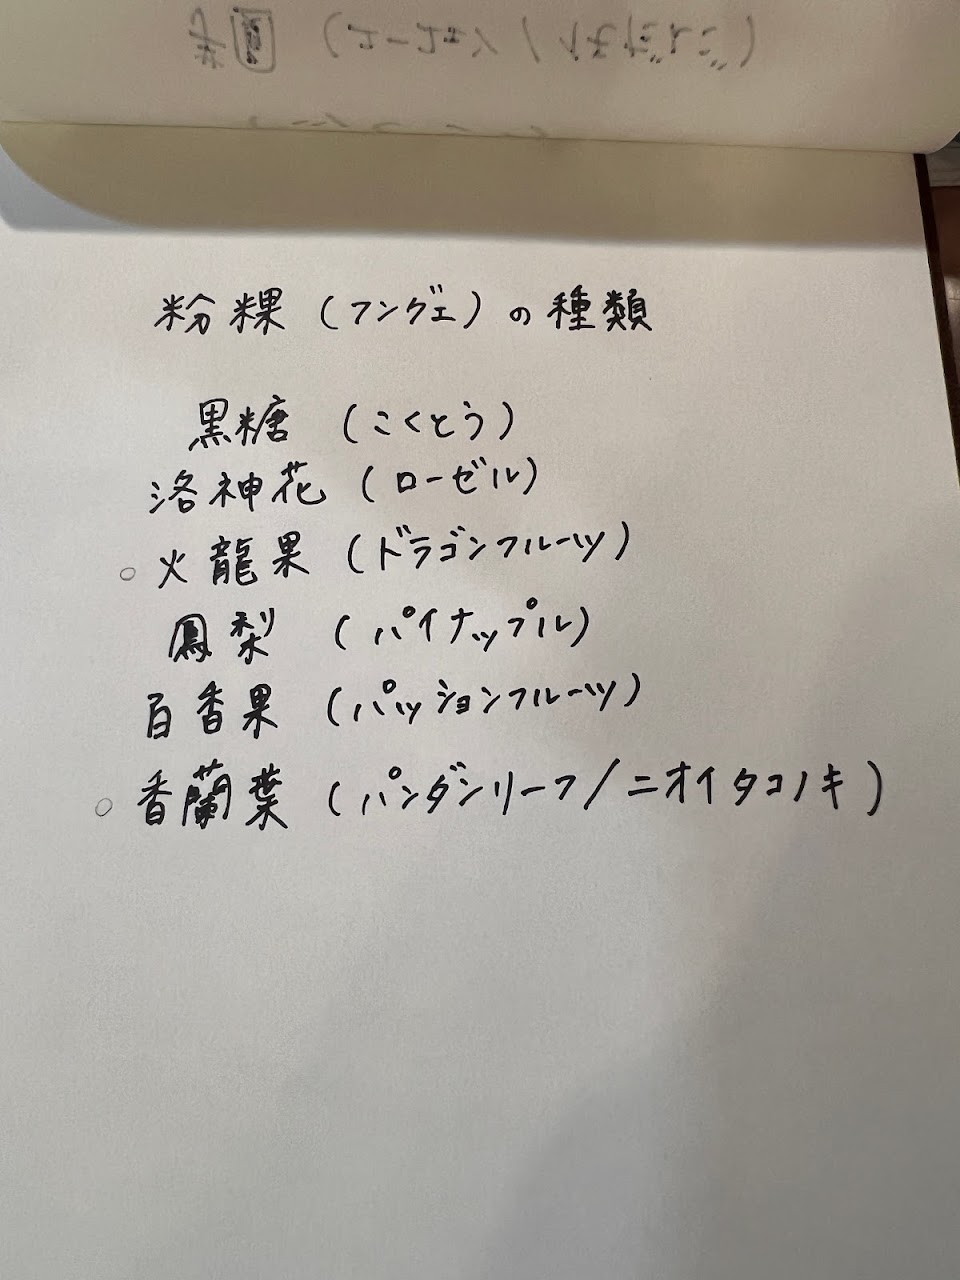 粉粿（フングェ）の種類
黒糖（こくとう）
洛神花（ローゼル）
○火龍果（ドラゴンフルーツ）
鳳梨（パイナップル）
百香果（パッションフルーツ）
○香蘭葉（パンダンリーフ/ニオイタコノキ）